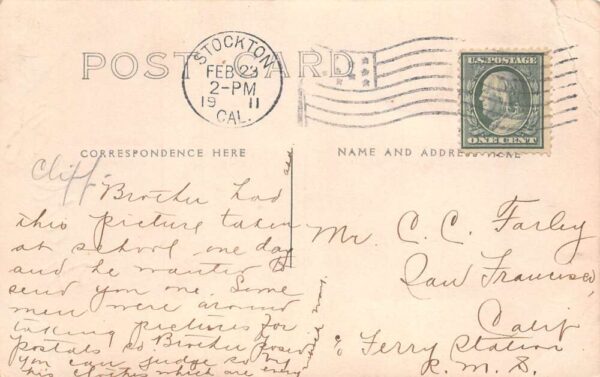 POST CARD
STOCKTON
FEB 23
2-PM
19 11
CAL.
U.S. POSTAGE
ONE CENT
CORRESPONDENCE HERE
NAME AND ADDRESS HERE
Cliff
Brother had
this picture taken
at school one day
and he wanted to
send you one. Some
men were around
taking pictures for
postals so Brother posed
you can judge so by
his clothes which are every
Mr. C. C. Farley
San Francisco,
Calif
% Ferry Station
R. M. S.